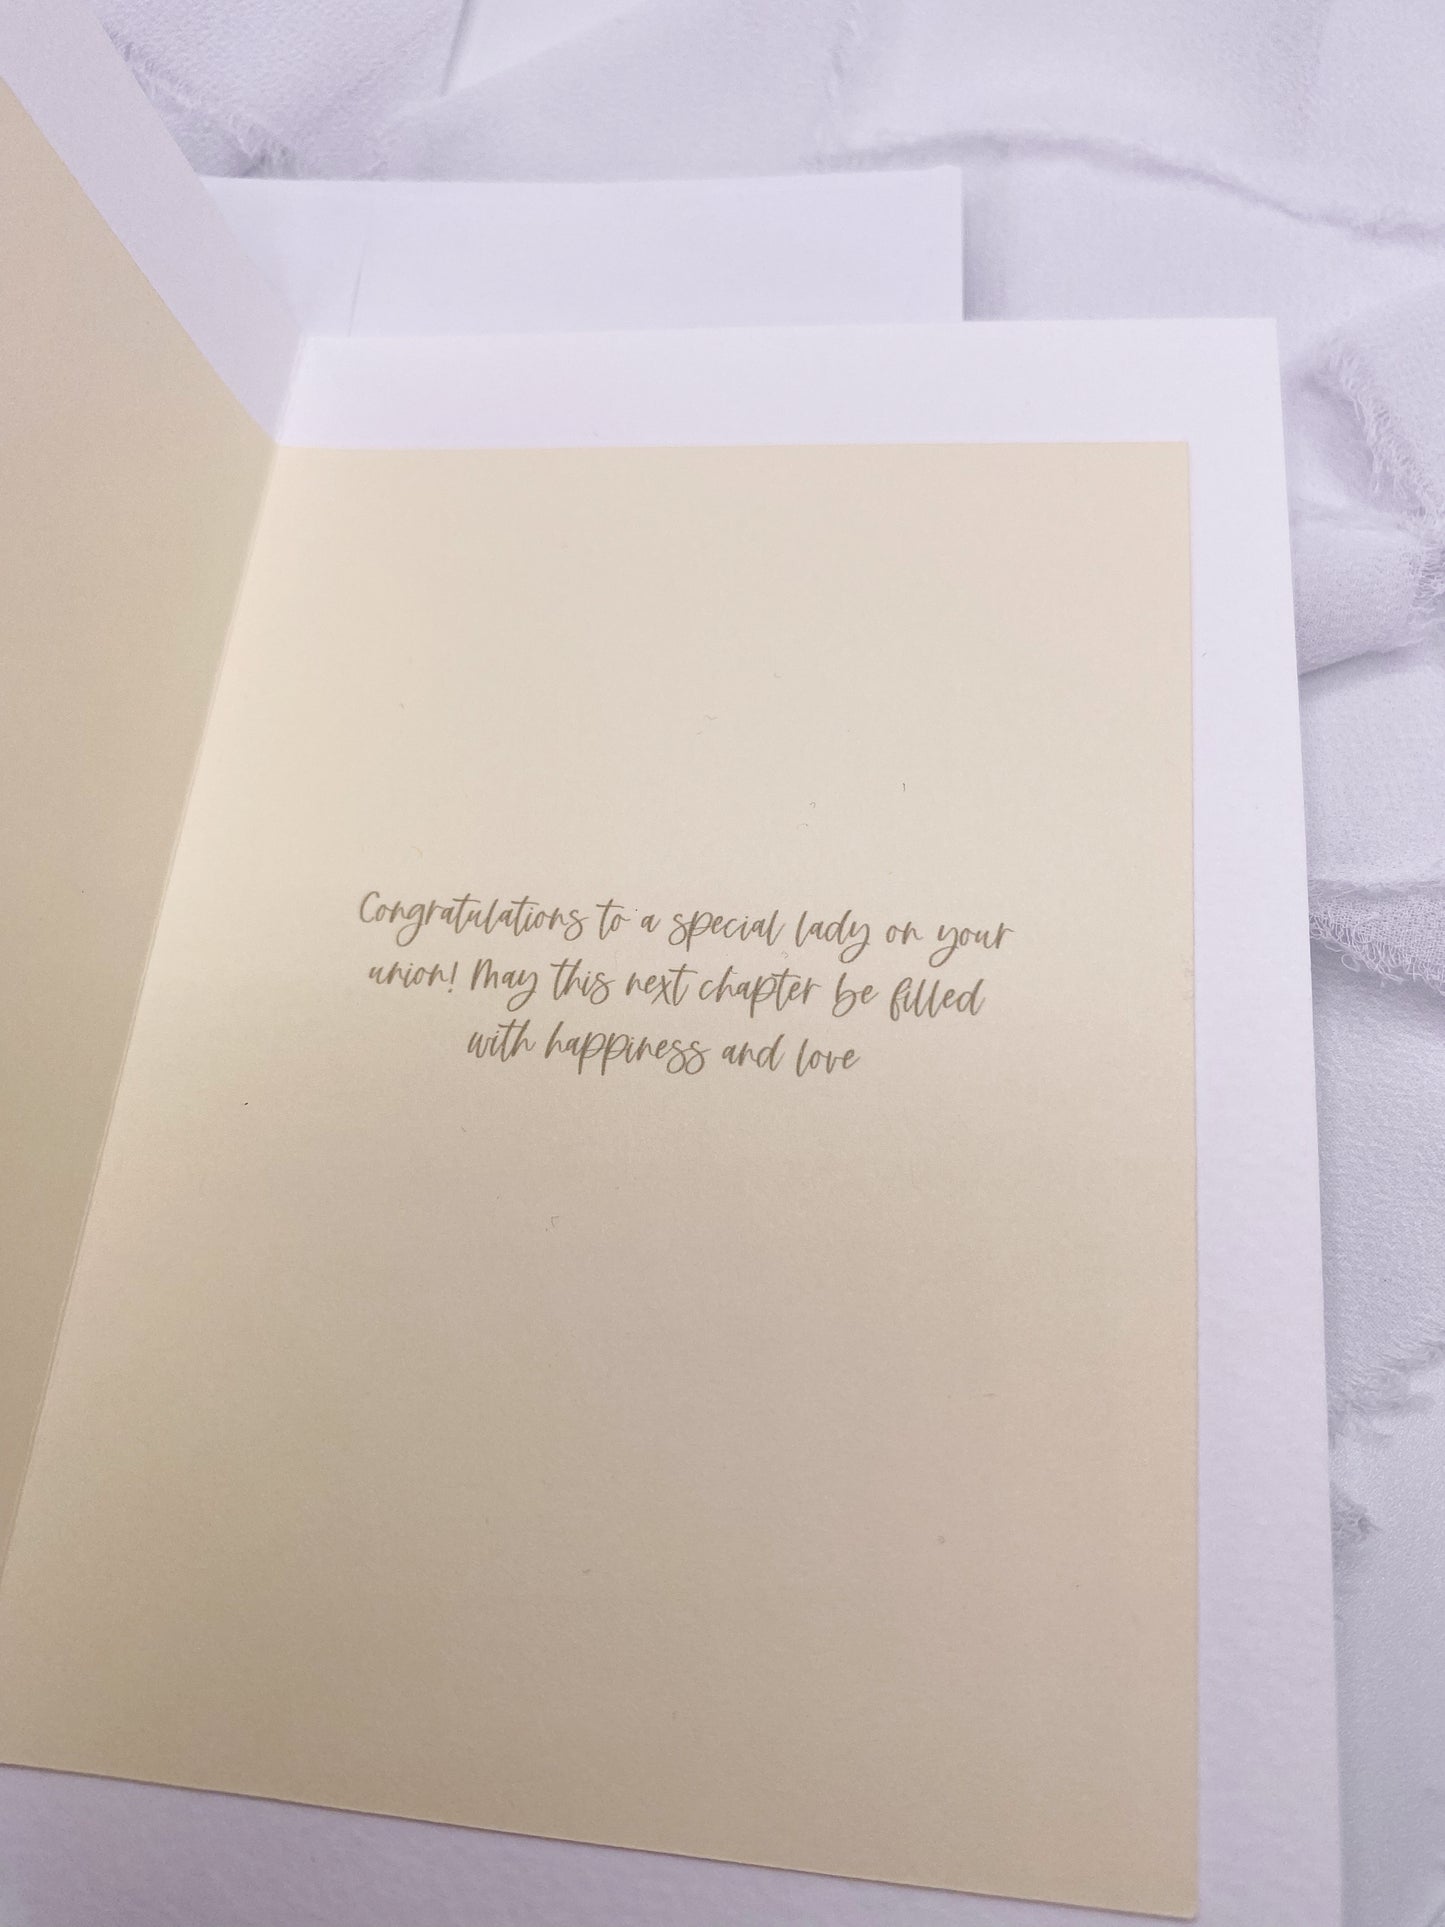 Congratulations to a special lady on your
union! May this next chapter be filled
with happiness and love